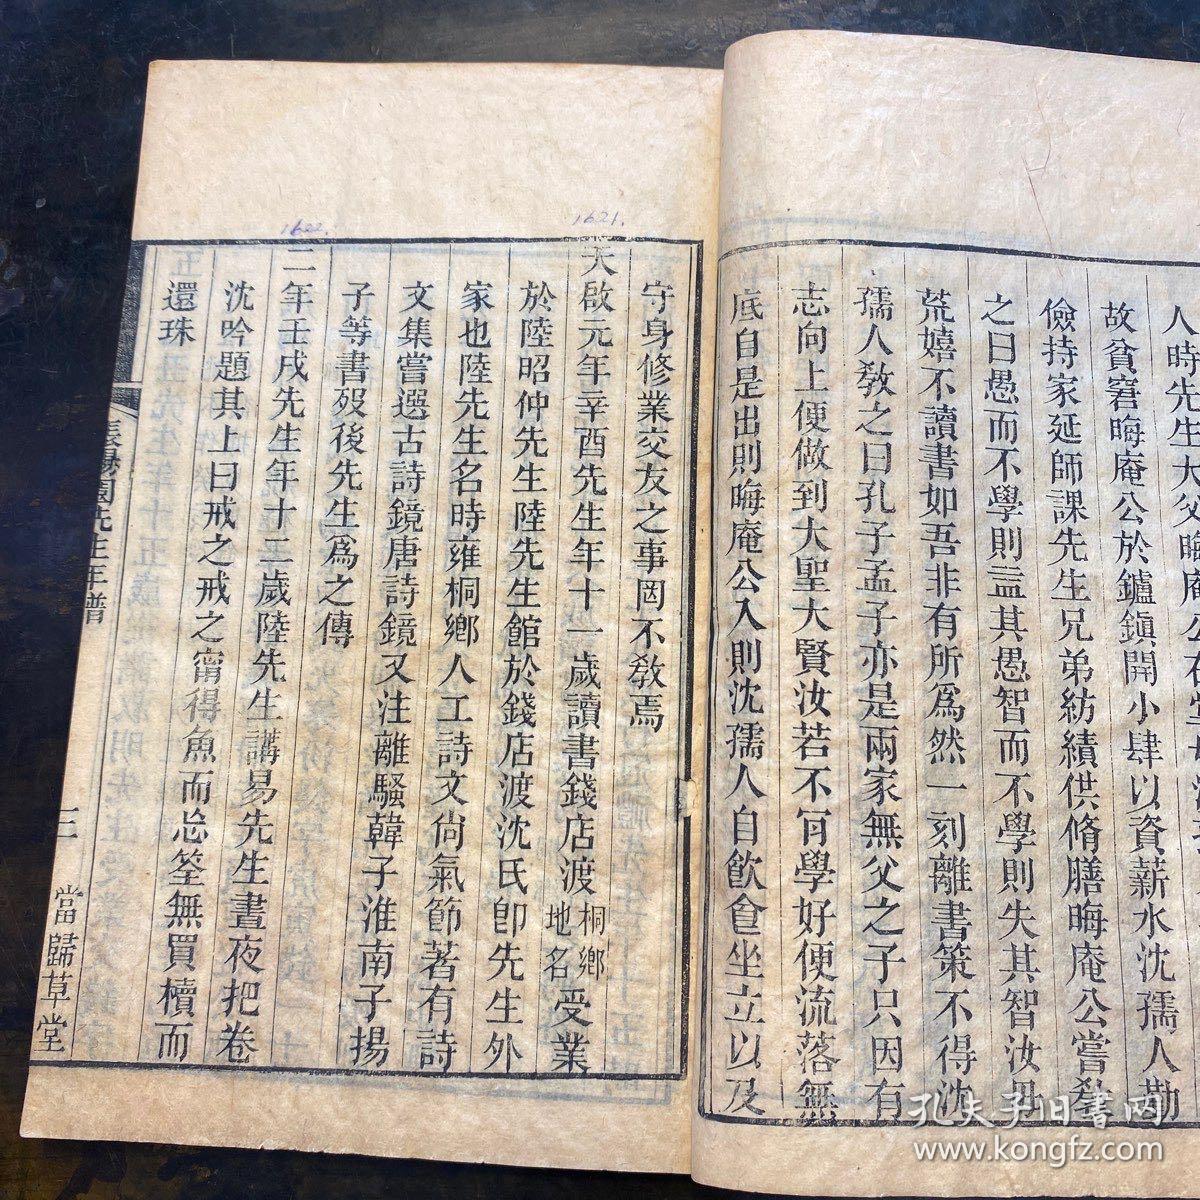 人時先生大父晦庵公在堂
故貧窘晦庵公於鑪鎭開小肆以資薪水沈孺人勤
儉持家延師課先生兄弟紡績供脩膳晦庵公嘗敎
之曰愚而不學則益其愚智而不學則失其智汝毋
荒嬉不讀書如吾非有所爲然一刻離書策不得沈
孺人敎之曰孔子孟子亦是兩家無父之子只因有
志向上便做到大聖大賢汝若不肯學好便流落無
底自是出則晦庵公入則沈孺人自飮食坐立以及
守身修業交友之事罔不敎焉
1621.
天啟元年辛酉先生年十一歲讀書錢店渡桐鄕地名受業
於陸昭仲先生陸先生館於錢店渡沈氏卽先生外
家也陸先生名時雍桐鄕人工詩文尙氣節著有詩
文集嘗選古詩鏡唐詩鏡又注離騷韓子淮南子揚
子等書歿後先生爲之傳
1622.
二年壬戌先生年十二歲陸先生講易先生晝夜把卷
沈吟題其上曰戒之戒之甯得魚而忘筌無買櫝而
還珠
張楊園先生年譜
三
當歸草堂
孔夫子旧书网
www.kongfz.com